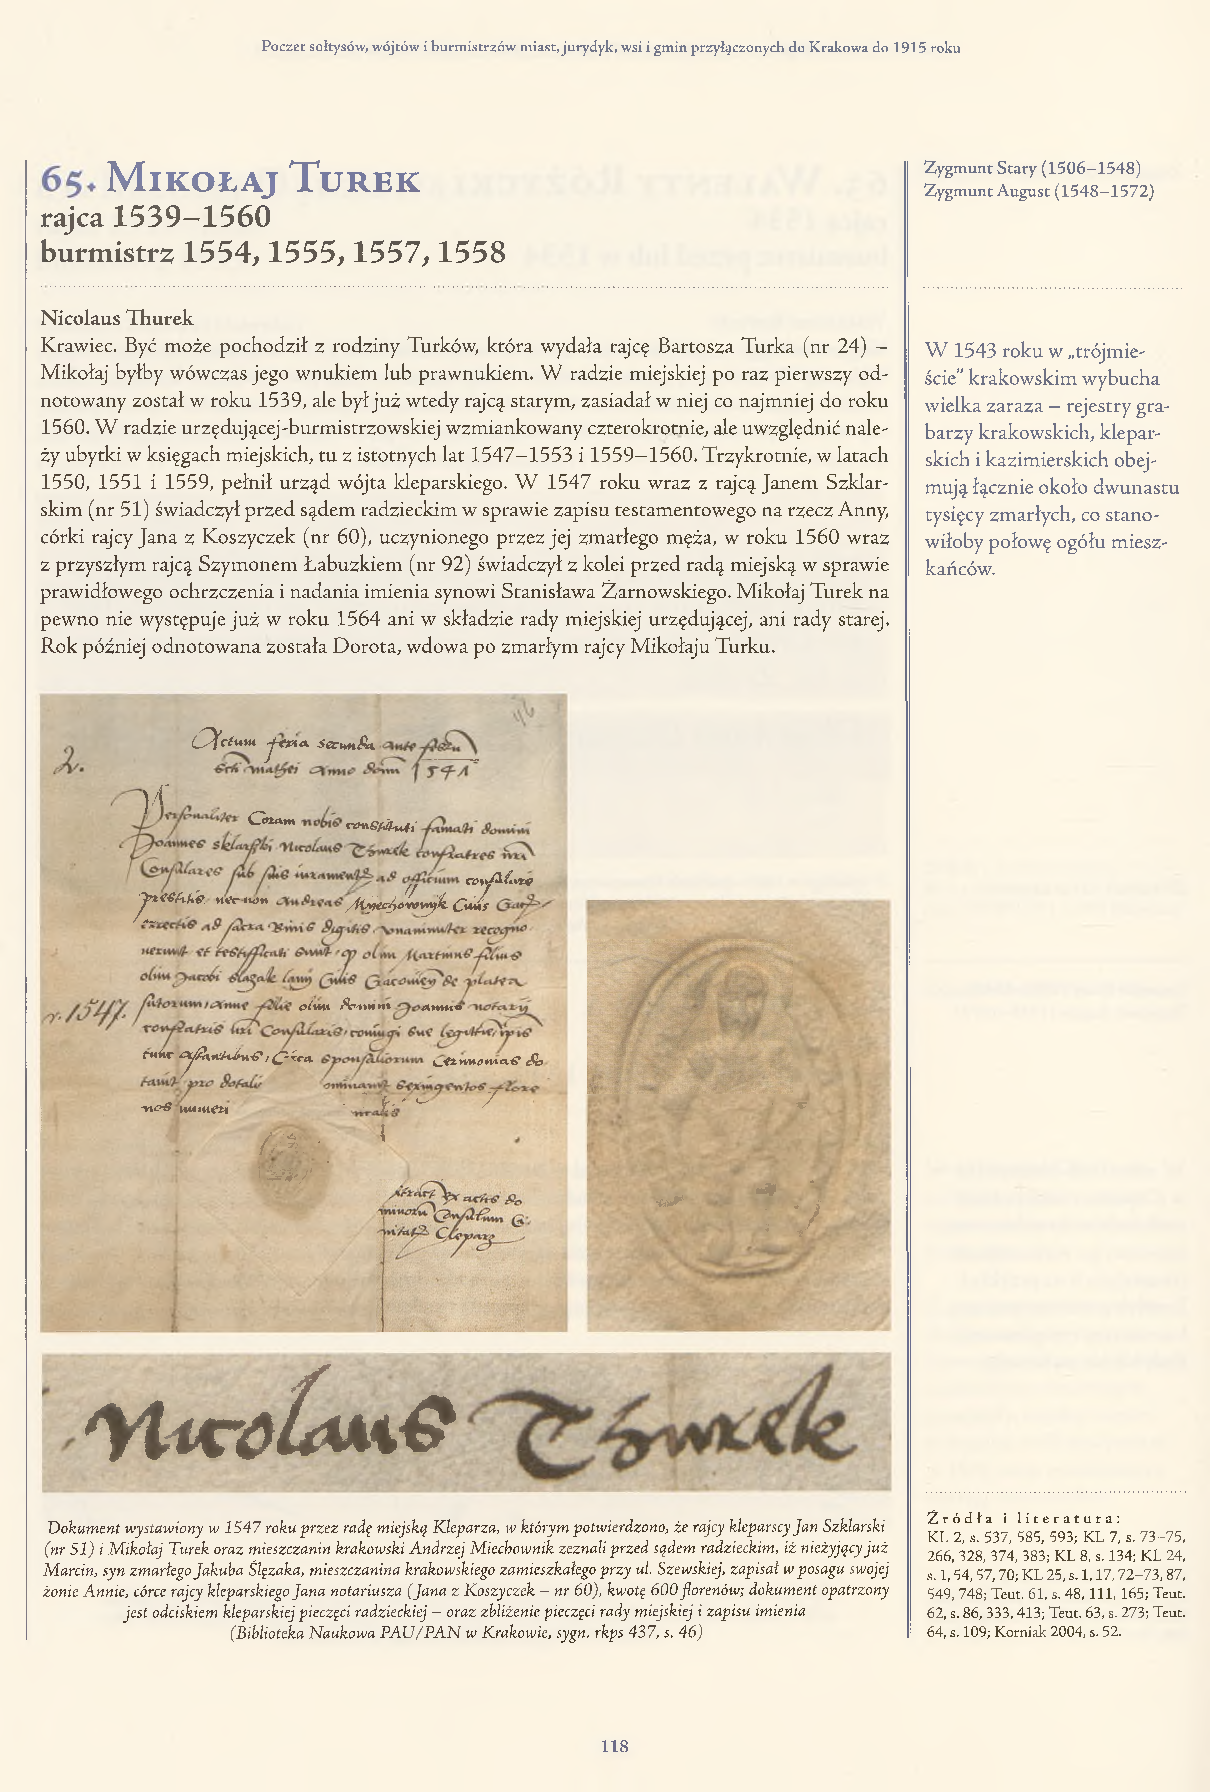 Poczet sołtysów, wójtów i burmistrzów miast, jurydyk, wsi i gmin przyłączonych do Krakowa do 1915 roku
65. Mikołaj Turek
rajca 1539–1560
burmistrz 1554, 1555, 1557, 1558
Nicolaus Thurek
Krawiec. Być może pochodził z rodziny Turków, która wydała rajcę Bartosza Turka (nr 24) –
Mikołaj byłby wówczas jego wnukiem lub prawnukiem. W radzie miejskiej po raz pierwszy od-
notowany został w roku 1539, ale był już wtedy rajcą starym, zasiadał w niej co najmniej do roku
1560. W radzie urzędującej-burmistrzowskiej wzmiankowany czterokrotnie, ale uwzględnić nale-
ży ubytki w księgach miejskich, tu z istotnych lat 1547–1553 i 1559–1560. Trzykrotnie, w latach
1550, 1551 i 1559, pełnił urząd wójta kleparskiego. W 1547 roku wraz z rajcą Janem Szklar-
skim (nr 51) świadczył przed sądem radzieckim w sprawie zapisu testamentowego na rzecz Anny,
córki rajcy Jana z Koszyczek (nr 60), uczynionego przez jej zmarłego męża, w roku 1560 wraz
z przyszłym rajcą Szymonem Łabuzkiem (nr 92) świadczył z kolei przed radą miejską w sprawie
prawidłowego ochrzczenia i nadania imienia synowi Stanisława Żarnowskiego. Mikołaj Turek na
pewno nie występuje już w roku 1564 ani w składzie rady miejskiej urzędującej, ani rady starej.
Rok później odnotowana została Dorota, wdowa po zmarłym rajcy Mikołaju Turku.
Zygmunt Stary (1506–1548)
Zygmunt August (1548–1572)
W 1543 roku w „trójmie-
ście” krakowskim wybucha
wielka zaraza – rejestry gra-
barzy krakowskich, klepar-
skich i kazimierskich obej-
mują łącznie około dwunastu
tysięcy zmarłych, co stano-
wiłoby połowę ogółu miesz-
kańców.
46
2.
Actum feria secunda ante festum
sti mathei Anno domi
Personaliter Coram nobis constituti famati domini
Joannes sklarski Nicolaus Thurek confratres nri
Consulares sub suis iuramentis ad officium consulare
prestitis necnon Andreas Myechownyk Civis
erectis ad sacra Rimis digitis vnanimiter recogno
nerunt et testifficati sunt olim Martinus filius
olim Jacobi slazak Civis de platea
r. 1547.
sutorum Anne filie olim domini Joannis notarij
confratris nri Consularis coniugi sue legittie ipis
tunc astantibus Circa sponsaliorum Cerimonias do
tavit pro dotali sexingentos flore
nos numeri
Extract ex actis do
minorum Consulum Ci
Cleparz
Nicolaus Thurek
Dokument wystawiony w 1547 roku przez radę miejską Kleparza, w którym potwierdzono, że rajcy kleparscy Jan Szklarski
(nr 51) i Mikołaj Turek oraz mieszczanin krakowski Andrzej Miechownik zeznali przed sądem radzieckim, iż nieżyjący już
Marcin, syn zmarłego Jakuba Ślęzaka, mieszczanina krakowskiego zamieszkałego przy ul. Szewskiej, zapisał w posagu swojej
żonie Annie, córce rajcy kleparskiego Jana notariusza (Jana z Koszyczek – nr 60), kwotę 600 florenów; dokument opatrzony
jest odciskiem kleparskiej pieczęci radzieckiej – oraz zbliżenie pieczęci rady miejskiej i zapisu imienia
(Biblioteka Naukowa PAU/PAN w Krakowie, sygn. rkps 437, s. 46)
Źródła i literatura:
KL 2, s. 537, 585, 593; KL 7, s. 73–75,
266, 328, 374, 383; KL 8, s. 134; KL 24,
s. 1, 54, 57, 70; KL 25, s. 1, 17, 72–73, 87,
549, 748; Teut. 61, s. 48, 111, 165; Teut.
62, s. 86, 333, 413; Teut. 63, s. 273; Teut.
64, s. 109; Korniak 2004, s. 52.
118